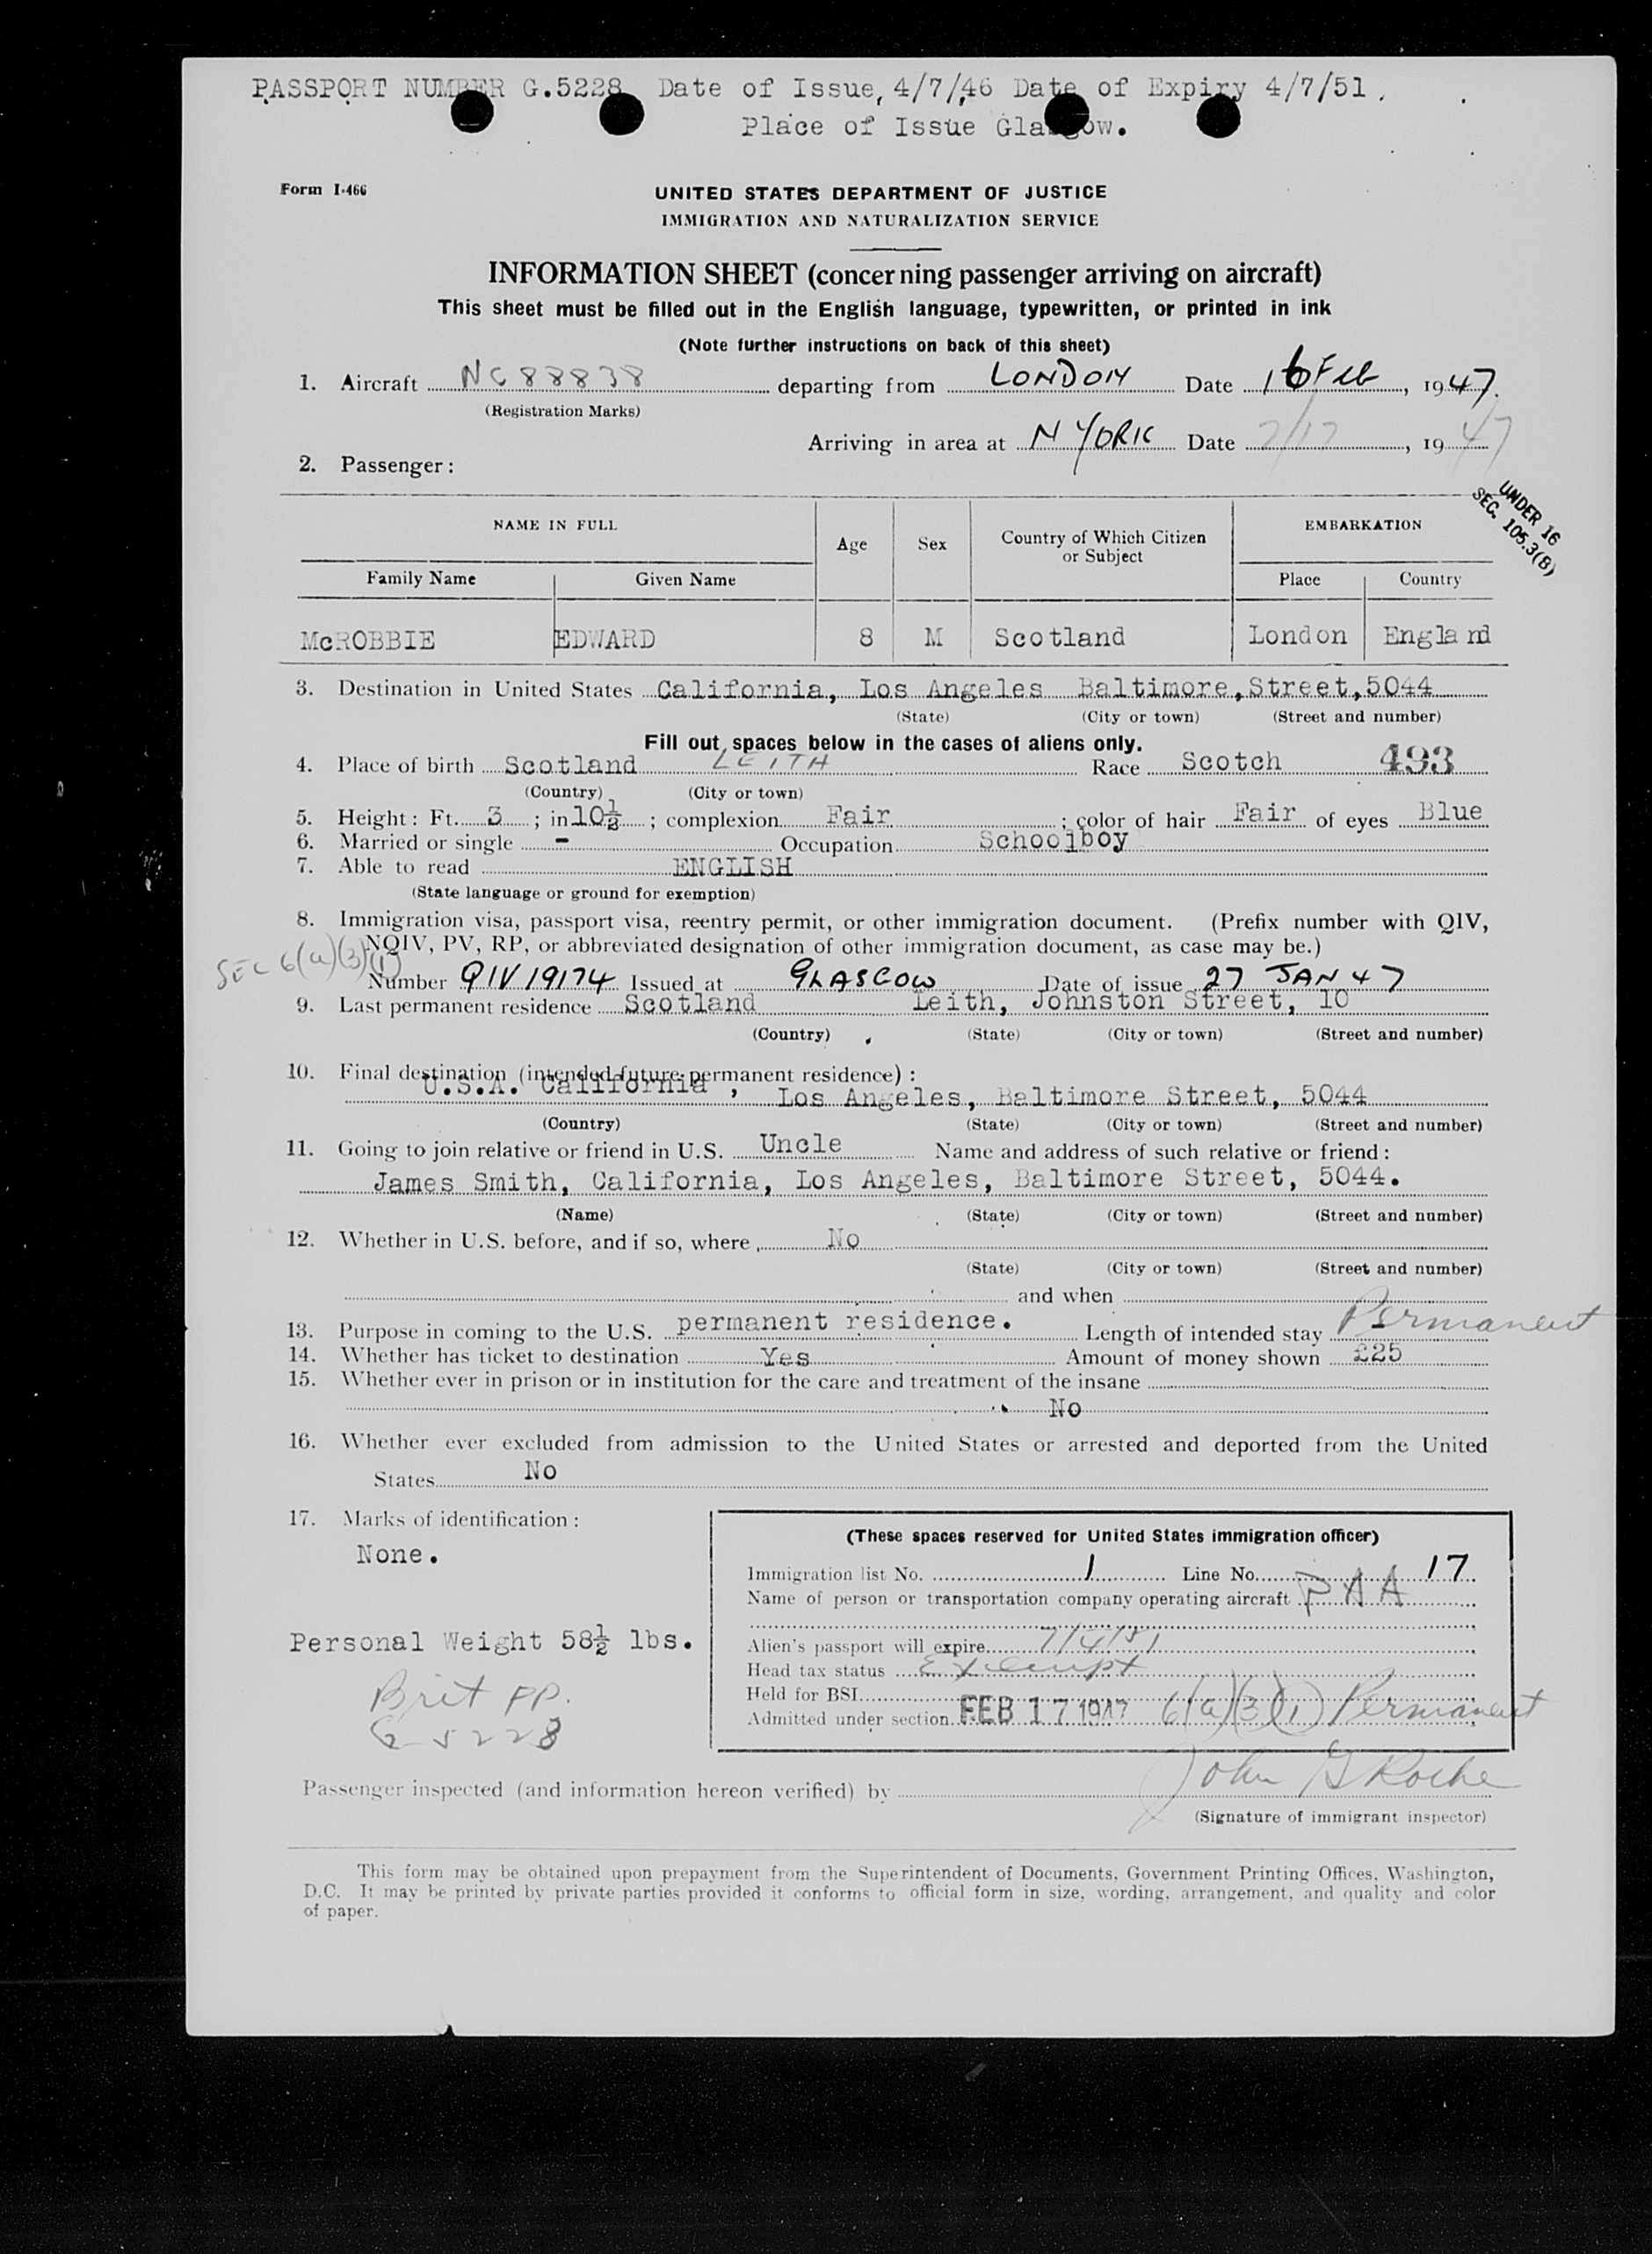 PASSPORT NUMBER G.5228 Date of Issue, 4/7/46 Date of Expiry 4/7/51.
Place of Issue Glasgow.
Form I-466
UNITED STATES DEPARTMENT OF JUSTICE
IMMIGRATION AND NATURALIZATION SERVICE
INFORMATION SHEET (concerning passenger arriving on aircraft)
This sheet must be filled out in the English language, typewritten, or printed in ink
(Note further instructions on back of this sheet)
1. Aircraft NC88838 departing from LONDON Date 16 Feb, 1947.
(Registration Marks)
Arriving in area at N YORK Date 2/17, 1947
2. Passenger:
UNDER 16
SEC. 105.3(B)
NAME IN FULL Age Sex Country of Which Citizen or Subject EMBARKATION
Family Name Given Name Place Country
McROBBIE EDWARD 8 M Scotland London England
3. Destination in United States California, Los Angeles Baltimore, Street, 5044
(State) (City or town) (Street and number)
Fill out spaces below in the cases of aliens only.
4. Place of birth Scotland LEITH Race Scotch 493
(Country) (City or town)
5. Height: Ft. 3; in 10½; complexion Fair; color of hair Fair of eyes Blue
6. Married or single - Occupation Schoolboy
7. Able to read ENGLISH
(State language or ground for exemption)
8. Immigration visa, passport visa, reentry permit, or other immigration document. (Prefix number with QIV,
NQIV, PV, RP, or abbreviated designation of other immigration document, as case may be.)
SEC 6(a)(3)(1)
Number QIV 19174 Issued at GLASGOW Date of issue 27 JAN 47
9. Last permanent residence Scotland Leith, Johnston Street, 10
(Country) (State) (City or town) (Street and number)
10. Final destination (intended future permanent residence):
U.S.A. California, Los Angeles, Baltimore Street, 5044
(Country) (State) (City or town) (Street and number)
11. Going to join relative or friend in U.S. Uncle Name and address of such relative or friend:
James Smith, California, Los Angeles, Baltimore Street, 5044.
(Name) (State) (City or town) (Street and number)
12. Whether in U.S. before, and if so, where No
(State) (City or town) (Street and number)
and when
13. Purpose in coming to the U.S. permanent residence. Length of intended stay Permanent
14. Whether has ticket to destination Yes Amount of money shown £25
15. Whether ever in prison or in institution for the care and treatment of the insane
No
16. Whether ever excluded from admission to the United States or arrested and deported from the United
States No
17. Marks of identification:
None.
Personal Weight 58½ lbs.
Brit PP.
G 5228
(These spaces reserved for United States immigration officer)
Immigration list No. 1 Line No. 17
Name of person or transportation company operating aircraft PAA
Alien's passport will expire 7/4/51
Head tax status Exempt
Held for BSI
Admitted under section FEB 17 1947 6(a)(3)(1) Permanent
Passenger inspected (and information hereon verified) by John G Roche
(Signature of immigrant inspector)
This form may be obtained upon prepayment from the Superintendent of Documents, Government Printing Offices, Washington,
D.C. It may be printed by private parties provided it conforms to official form in size, wording, arrangement, and quality and color
of paper.